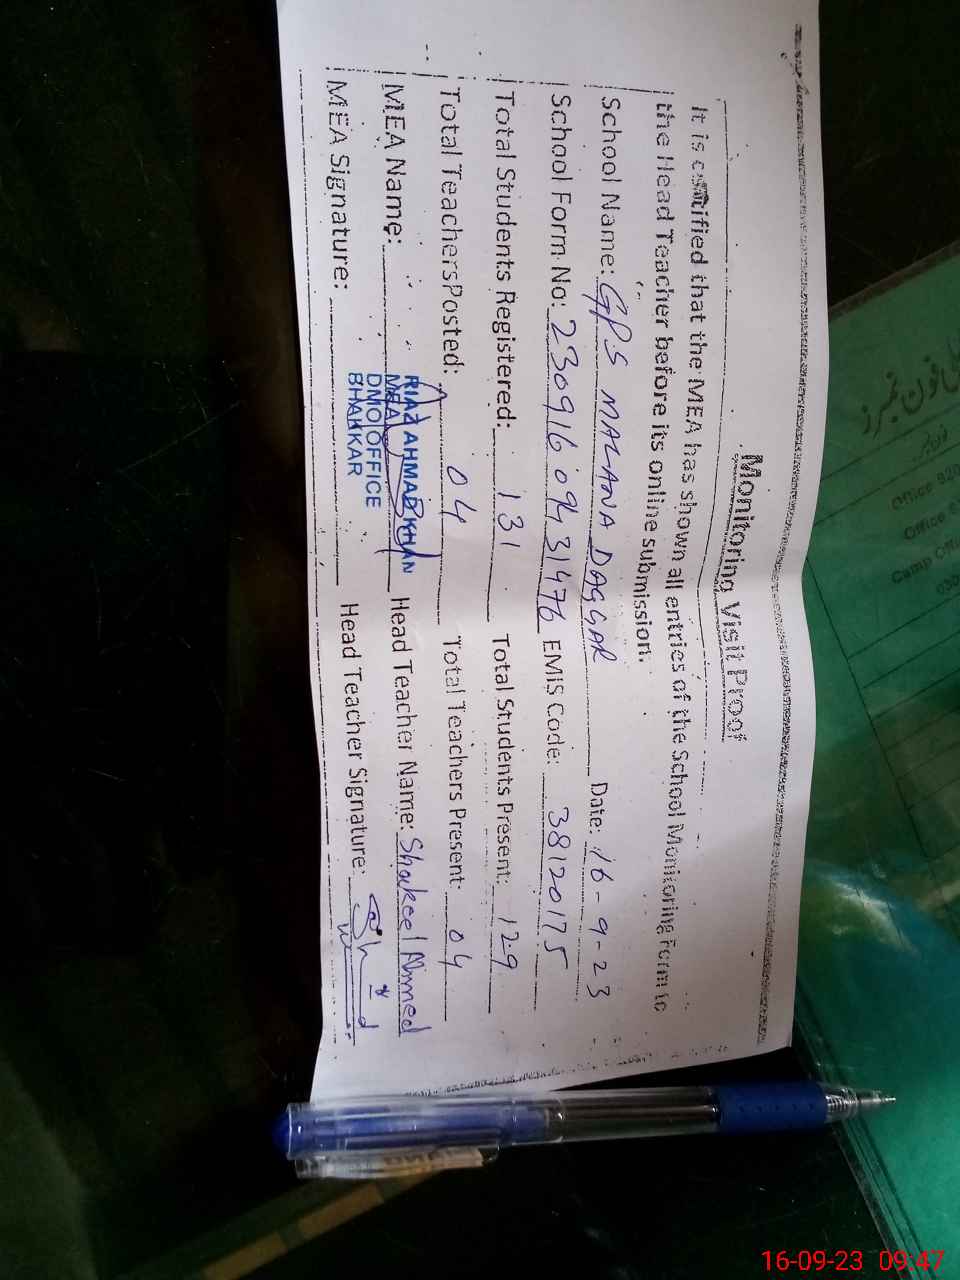 Monitoring Visit Proof
It is certified that the MEA has shown all entries of the School Monitoring Form to
the Head Teacher before its online submission.
School Name: GPS MALANA DAGGAR Date: 16-9-23
School Form No: 230916 094 31476 EMIS Code: 38120175
Total Students Registered: 131 Total Students Present: 129
Total Teachers Posted: 04 Total Teachers Present: 04
MEA Name: RIAZ AHMAD KHAN Head Teacher Name: Shakeel Ahmed
MEA
DMO OFFICE
BHAKKAR
MEA Signature: Head Teacher Signature:
فون نمبرز
Office
Office
Camp Office
16-09-23 09:47